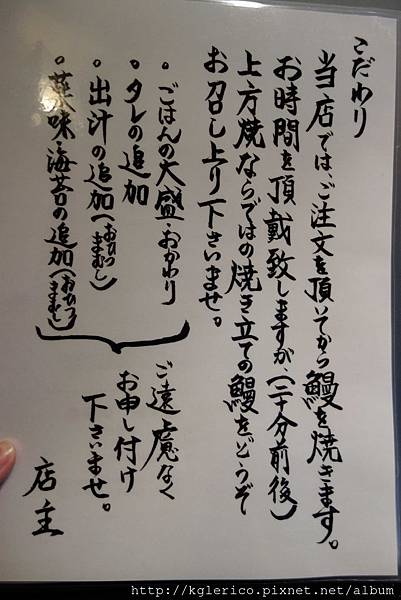 こだわり
当店では、ご注文を頂いてから鰻を焼きます。
お時間を頂戴致しますが、(二十分前後)
上方焼ならではの焼き立ての鰻をどうぞ
お召し上り下さいませ。
・ごはんの大盛・おかわり
・タレの追加
・出汁の追加(おひつまむし)
・薬味・海苔の追加(おひつまむし)
ご遠慮なく
お申し付け
下さいませ。
店主
http://kglerico.pixnet.net/album